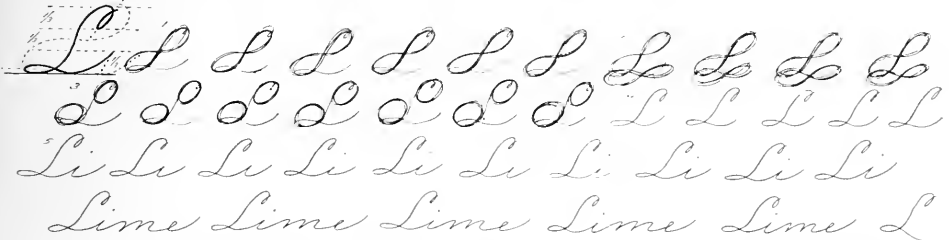 L L L L L L L L L L L
L L L L L L L L L L L L
Li Li Li Li Li Li Li Li Li Li
Lime Lime Lime Lime Lime L